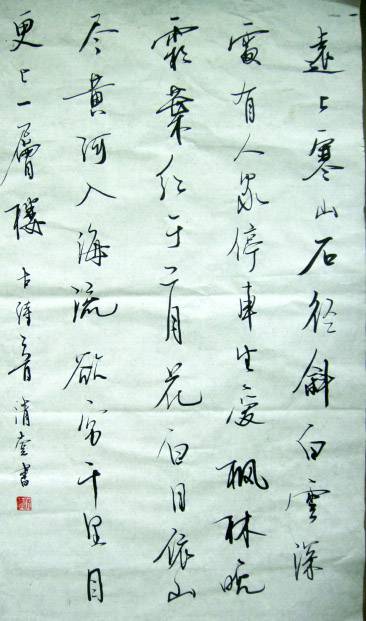 遠上寒山石径斜白雲深
處有人家停車坐愛楓林晚
霜葉红于二月花白日依山
尽黄河入海流欲穷千里目
更上一層樓 古詩二首 書